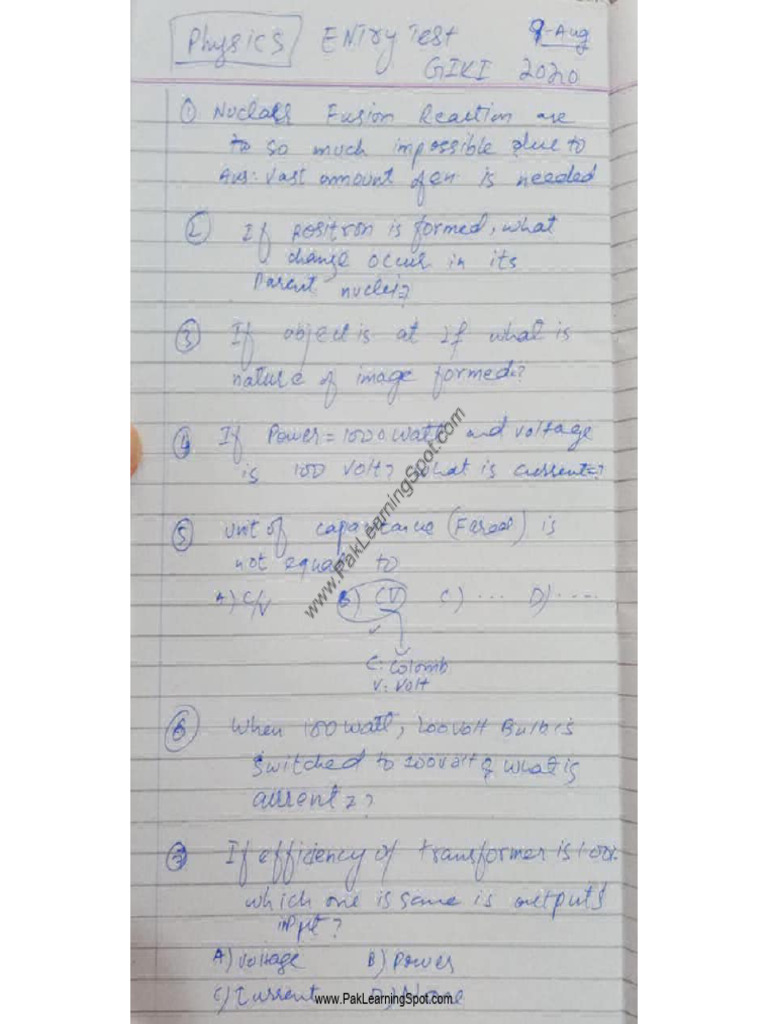 Physics ENtry Test 9-Aug
GIKI 2020
① Nuclear Fusion Reaction are
to so much impossible due to
Ans: Vast amount of en is needed
② If positron is formed, what
change occur in its
Parent nuclei?
③ If object is at If what is
nature of image formed?
④ If Power = 1000 watt and voltage
is 100 volt? what is current=?
⑤ unit of capacitance (Farad) is
not equal to
A) C/V B) CV C) ... D) ....
C: Colomb
V: Volt
⑥ When 100 watt, 200 volt Bulb is
switched to 200 volt & what is
current = ?
⑦ If efficiency of transformer is 100%
which one is same is outputs
input?
A) Voltage B) Power
C) Current D) None
www.PakLearningSpot.com
www.PakLearningSpot.com